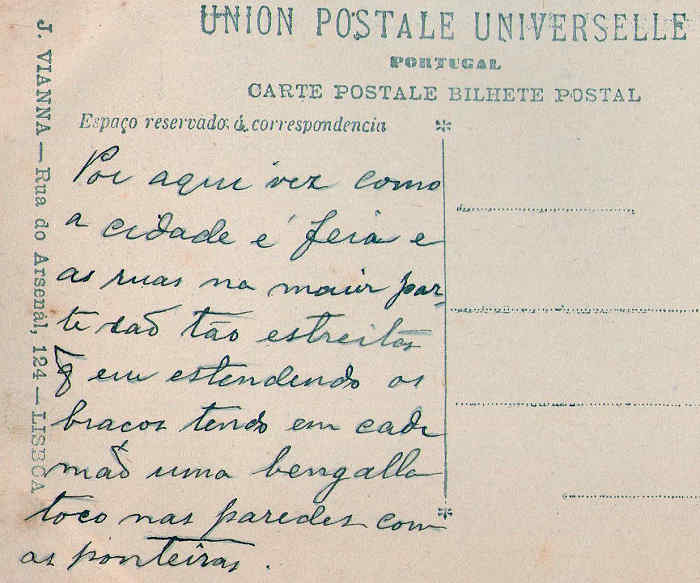 UNION POSTALE UNIVERSELLE
PORTUGAL
CARTE POSTALE BILHETE POSTAL
Espaço reservado á correspondencia
J. VIANNA — Rua do Arsenal, 124 — LISBOA
Por aqui vez como
a cidade é feia e
as ruas na maior par-
te são tão estreitas
q eu estendendo os
bracos tendo em cada
mão uma bengalla
toco nas paredes com
as ponteiras.